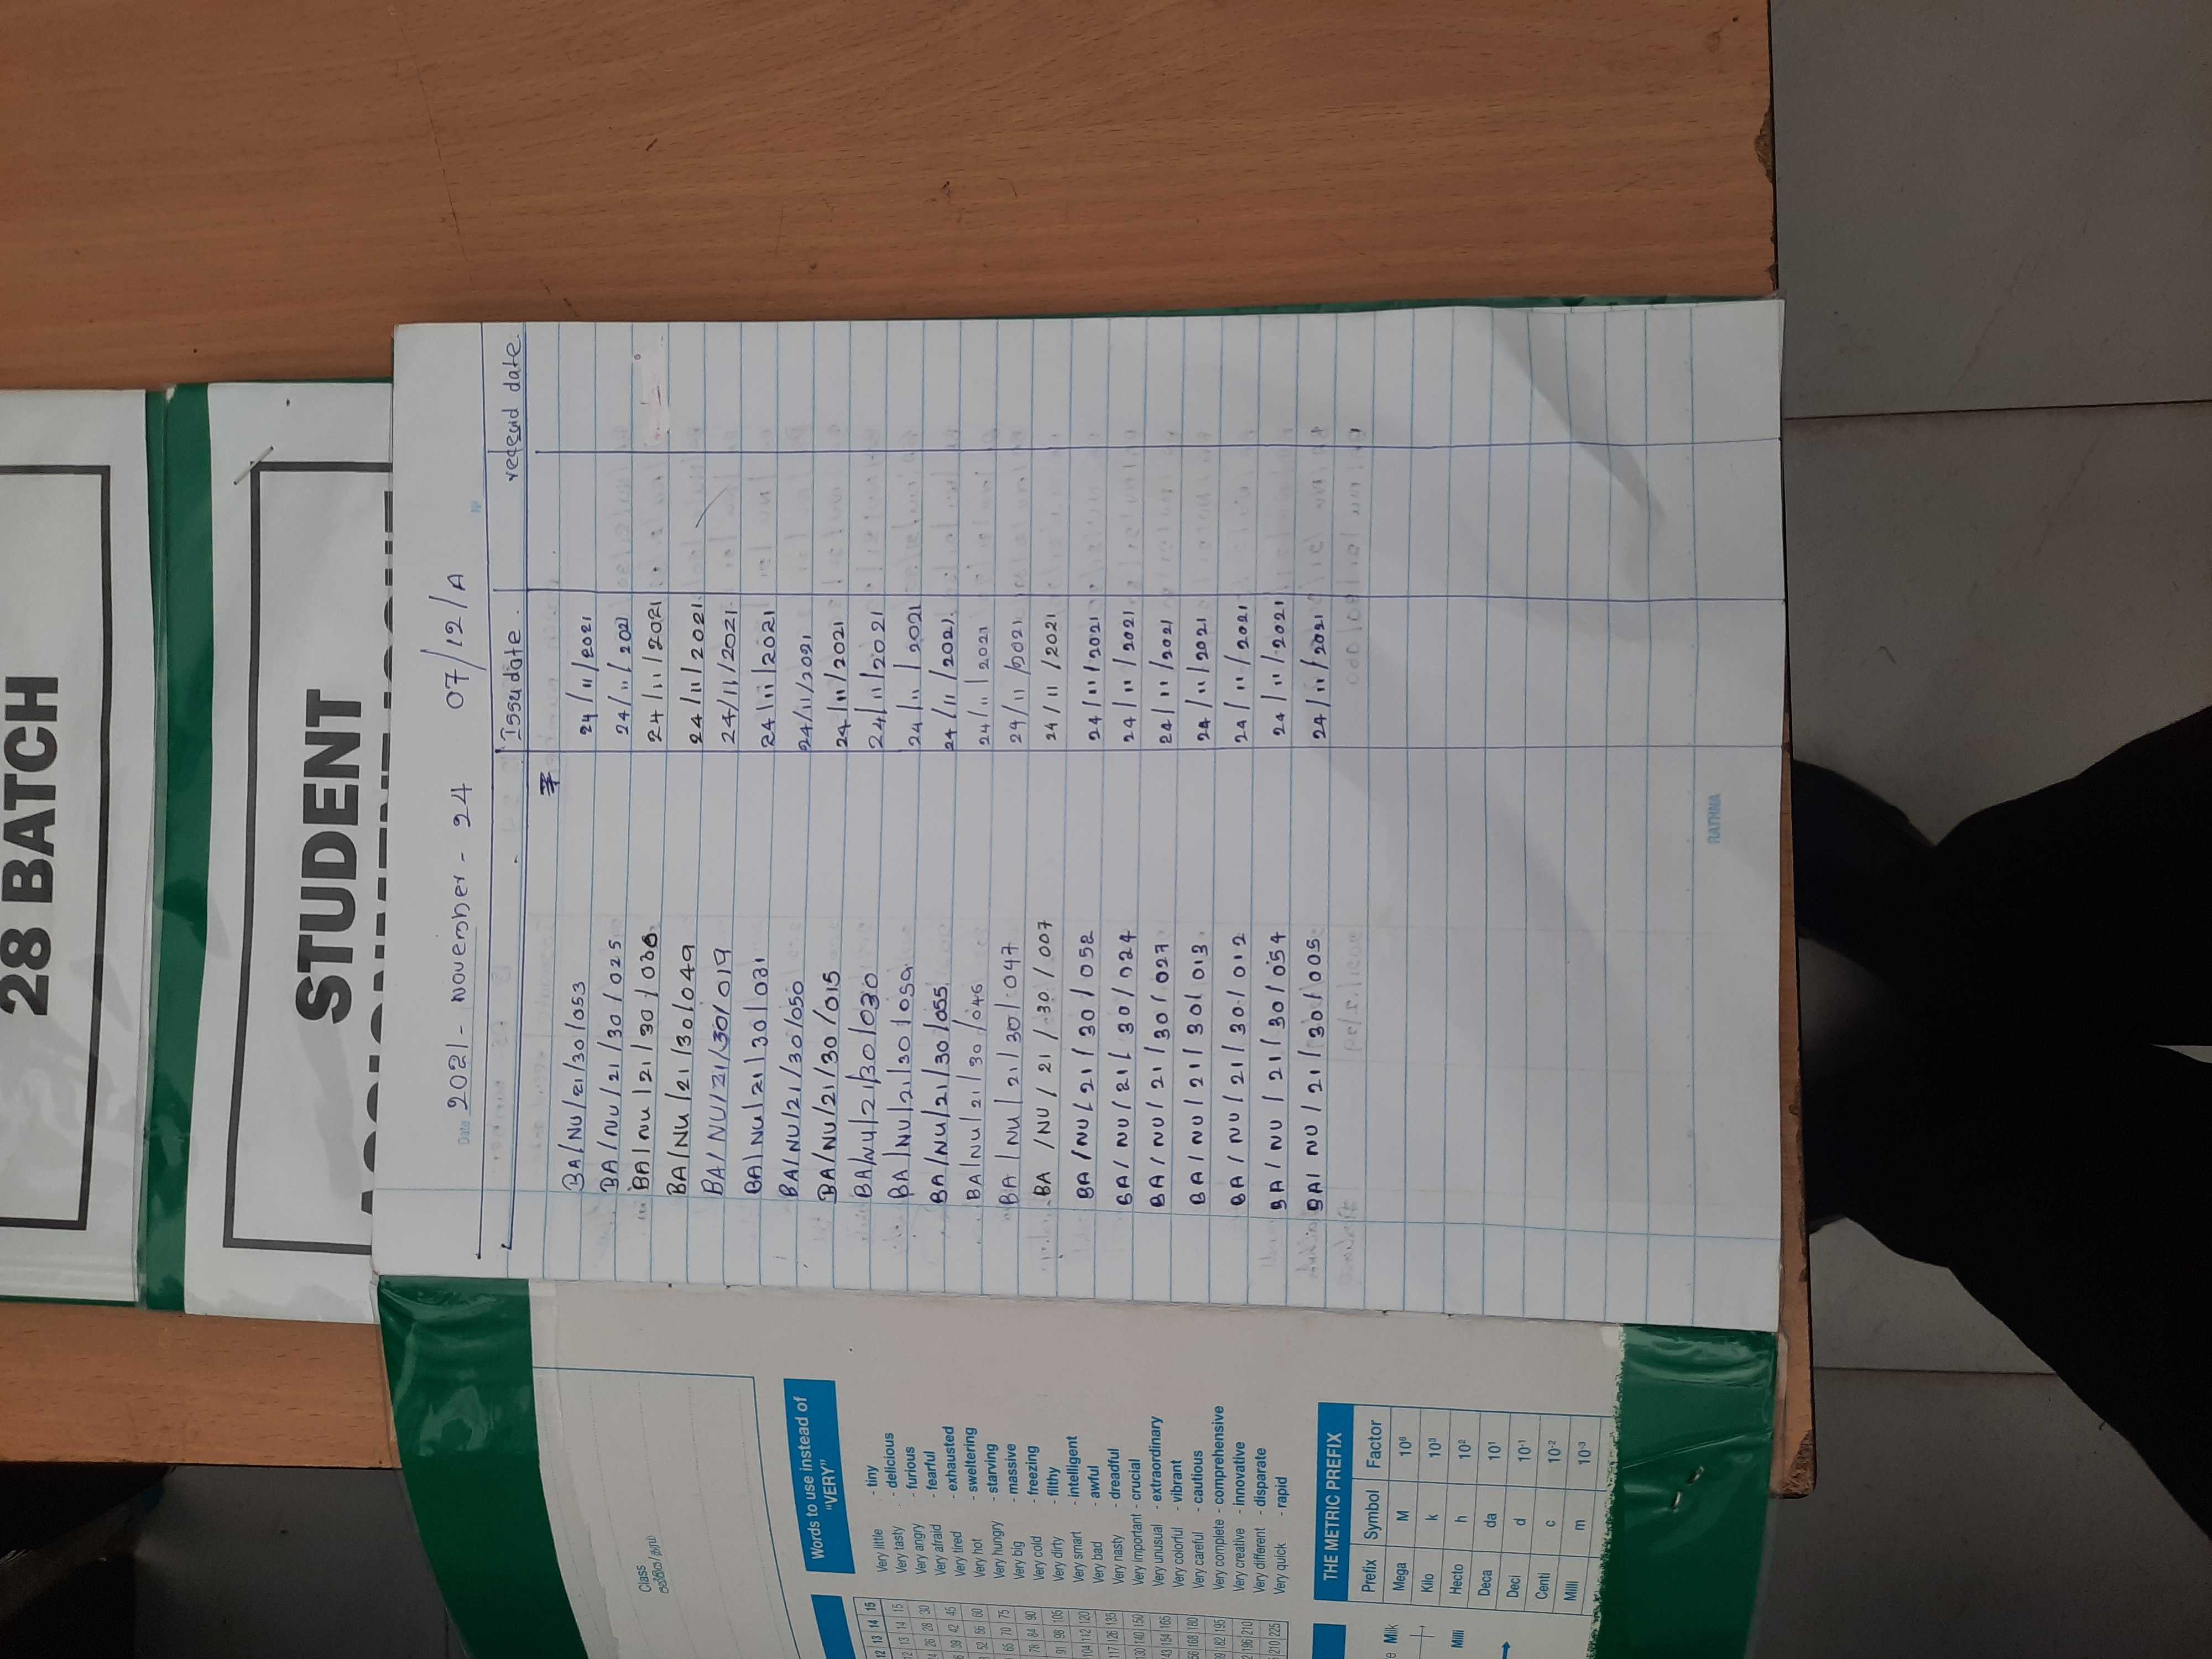 28 BATCH
STUDENT
Date 2021 - November - 24 07/12/A
Issudate. requid date
BA/NU/21/30/053 24/11/2021
BA/NU/21/30/025 24/11/2021
BA/NU/21/30/ 24/11/2021
BA/NU/21/30/049 24/11/2021
BA/NU/21/30/019 24/11/2021
BA/NU/21/30/031 24/11/2021
BA/NU/21/30/050 24/11/2021
BA/NU/21/30/015 24/11/2021
BA/NU/21/30/030 24/11/2021
BA/NU/21/30/059 24/11/2021
BA/NU/21/30/055 24/11/2021
BA/NU/21/30/046 24/11/2021
BA/NU/21/30/047 24/11/2021
BA/NU/21/30/007 24/11/2021
BA/NU/21/30/058 24/11/2021
BA/NU/21/30/024 24/11/2021
BA/NU/21/30/027 24/11/2021
BA/NU/21/30/013 24/11/2021
BA/NU/21/30/012 24/11/2021
BA/NU/21/30/054 24/11/2021
BA/NU/21/30/005 24/11/2021
RATHNA
Class
Words to use instead of
"VERY"
Very little - tiny
Very tasty - delicious
Very angry - furious
Very afraid - fearful
Very tired - exhausted
Very hot - sweltering
Very hungry - starving
Very big - massive
Very cold - freezing
Very dirty - filthy
Very smart - intelligent
Very bad - awful
Very nasty - dreadful
Very important - crucial
Very unusual - extraordinary
Very colorful - vibrant
Very careful - cautious
Very complete - comprehensive
Very creative - innovative
Very different - disparate
Very quick - rapid
THE METRIC PREFIX
Prefix Symbol Factor
Mega M 10⁶
Kilo k 10³
Hecto h 10²
Deca da 10¹
Deci d 10⁻¹
Centi c 10⁻²
Milli m 10⁻³
12 13 14 15
13 14 15
26 28 30
39 42 45
52 56 60
65 70 75
78 84 90
91 98 105
104 112 120
117 126 135
130 140 150
143 154 165
168 180
182 195
196 210
210 225
Milk
Milli